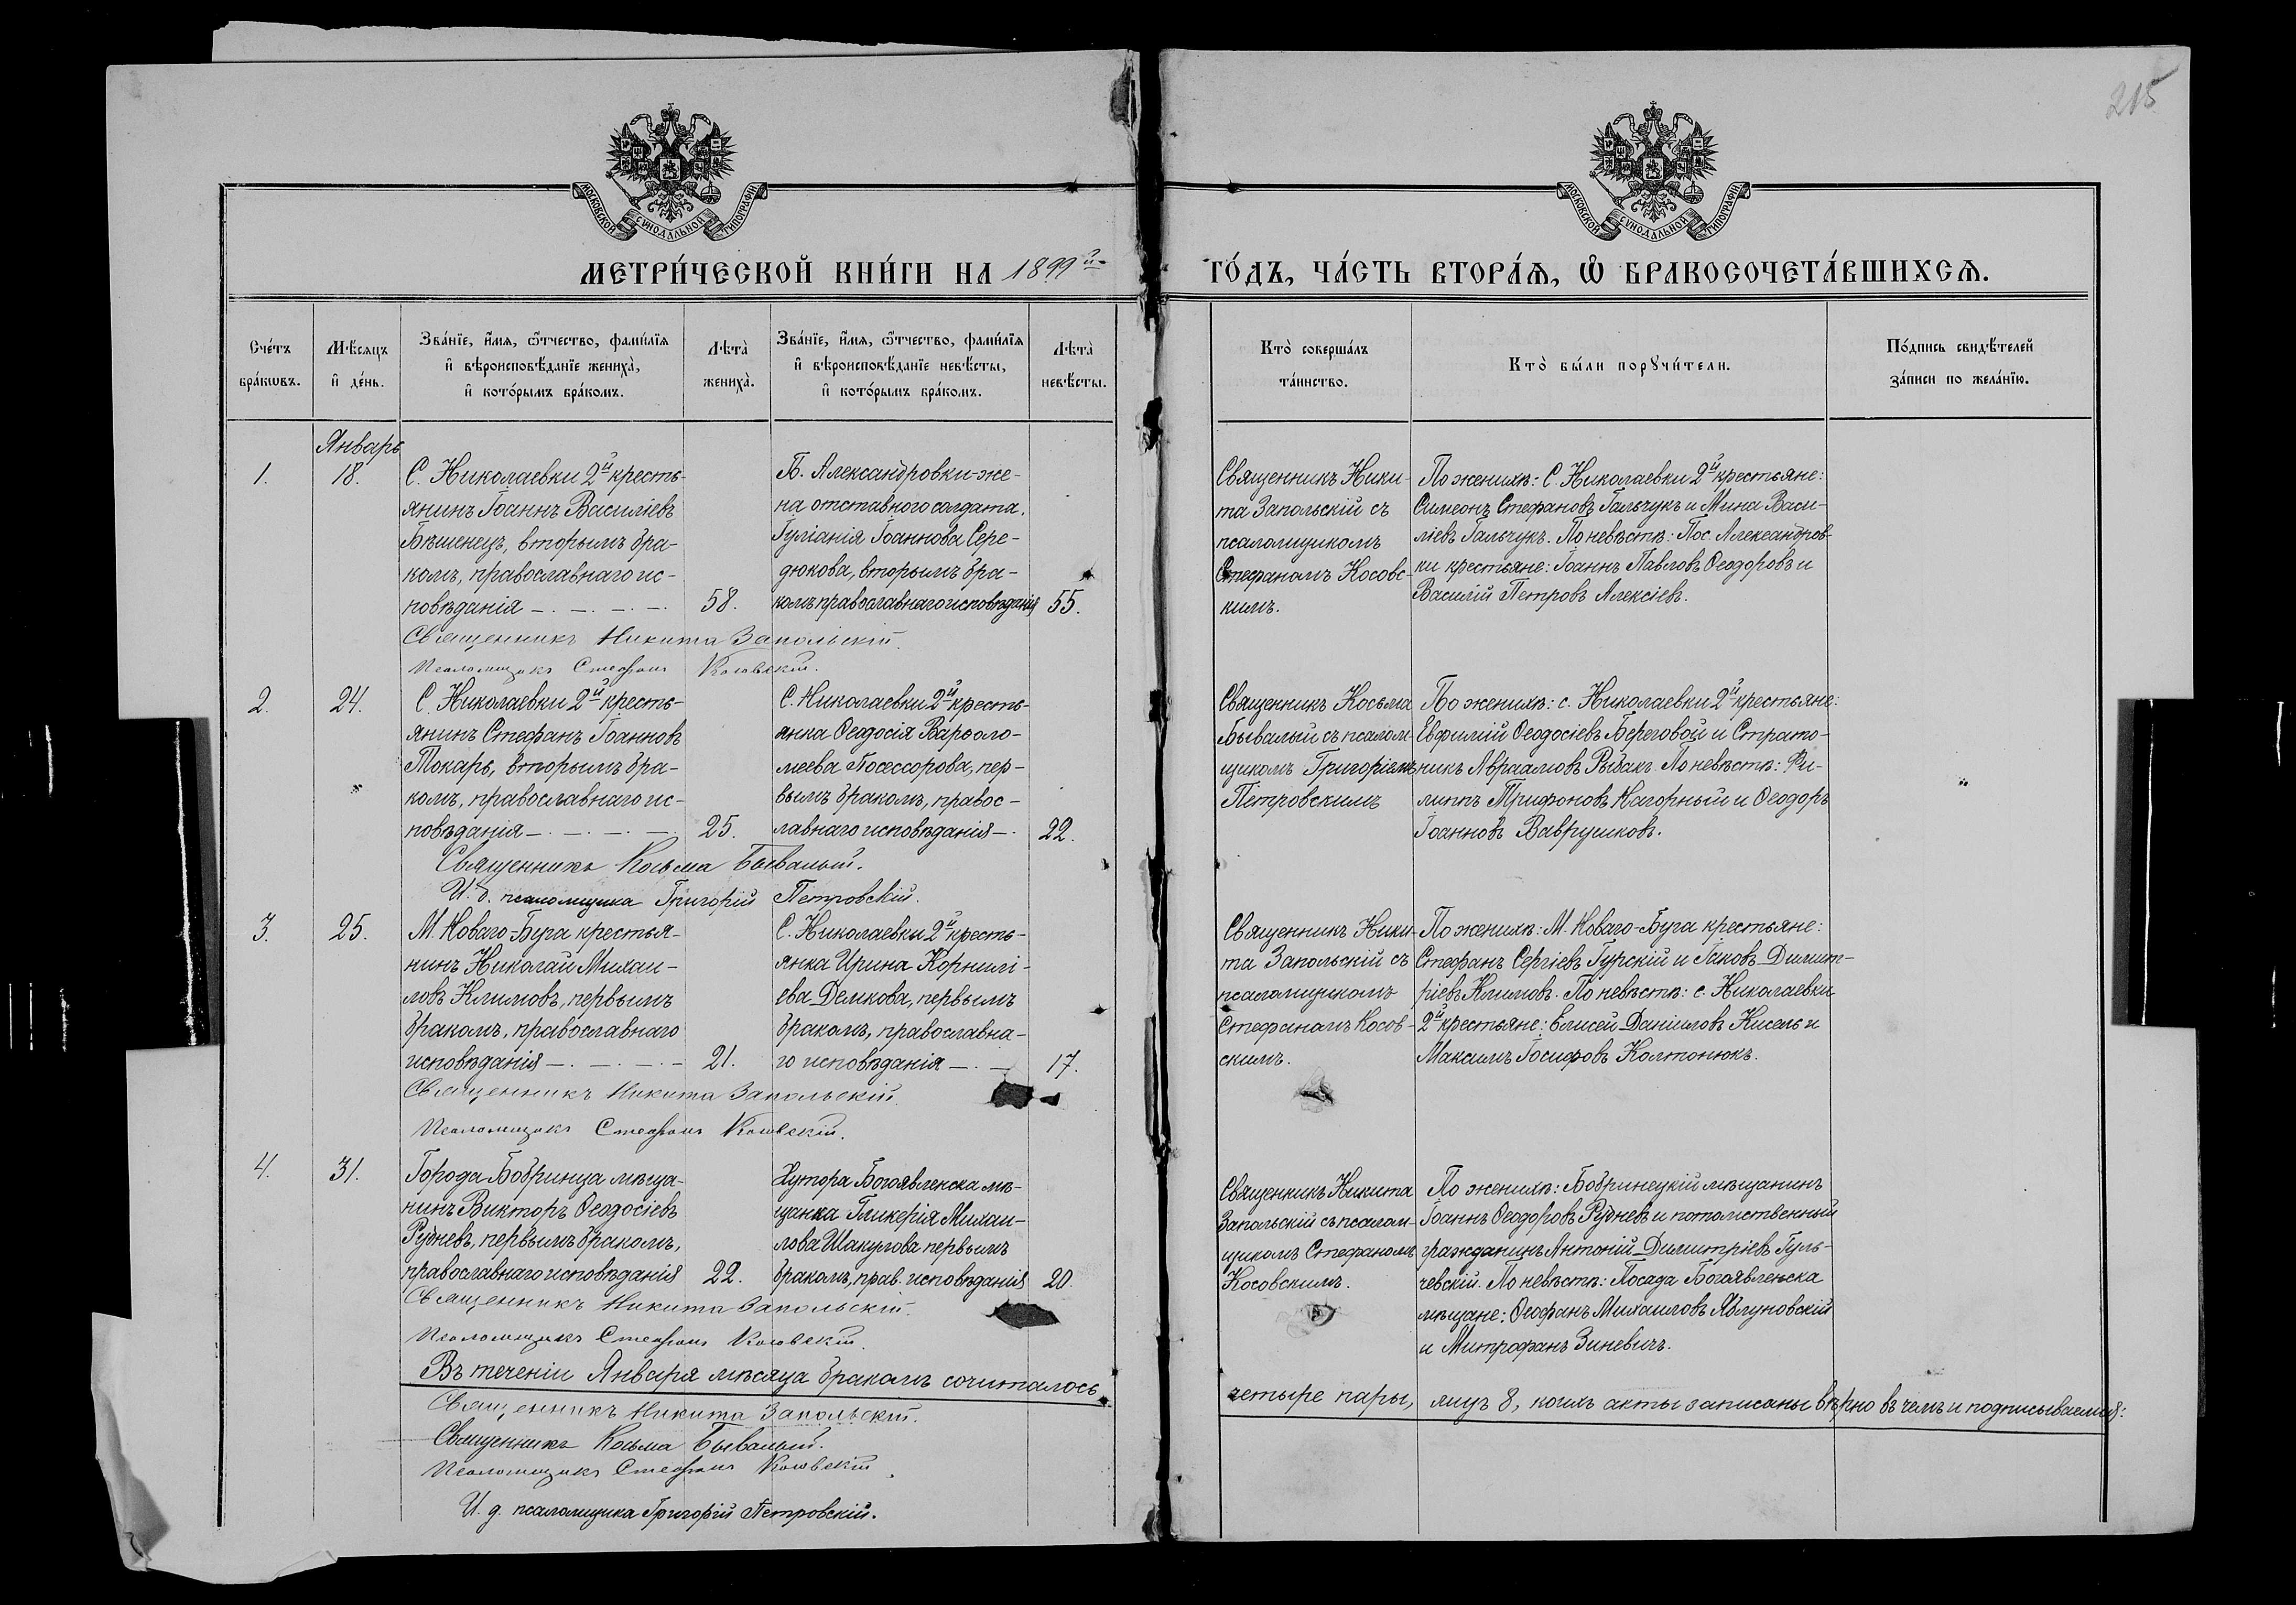 215
МОСКОВСКОЙ СѴНОДАЛЬНОЙ ТИПОГРАФІИ
МОСКОВСКОЙ СѴНОДАЛЬНОЙ ТИПОГРАФІИ
МЕТРИ́ЧЕСКОЙ КНИ́ГИ НА 1899й
ГО́ДЪ, ЧА́СТЬ ВТОРА́Ѧ, Ѽ БРАКОСОЧЕТА́ВШИХСѦ.
Сче́тъ
бра́кѡвъ.
Мѣ́сяцъ
и҆ де́нь.
Зва́нїе, и҆́мя, ѻ҆́тчество, фами́лїя
и҆ вѣроисповѣ́данїе жениха̀,
и҆ кото́рымъ бра́комъ.
Лѣта̀
жениха̀.
Зва́нїе, и҆́мя, ѻ҆́тчество, фами́лїя
и҆ вѣроисповѣ́данїе невѣ́сты,
и҆ кото́рымъ бра́комъ.
Лѣта̀
невѣ́сты.
Кто̀ соверша́лъ
та́инство.
Кто̀ бы́ли порꙋчи́тели.
По́дпись свидѣ́телей
за́писи по жела́нїю.
Январь
1.
18.
С. Николаевки 2й кресть-
янинъ Іоаннъ Василіевъ
Бѣшенецъ, вторымъ бра-
комъ, православнаго ис-
повѣданія
58.
П. Александровки же-
на отставного солдата
Іуліанія Іоаннова Сере-
дюкова, вторымъ бра-
комъ православнаго исповѣданія
55.
Священникъ Ники-
та Запольскій съ
псаломщикомъ
Стефаномъ Косовс-
кимъ.
По женихѣ: С. Николаевки 2й крестьяне:
Симеонъ Стефановъ Гальчукъ и Мина Васи-
ліевъ Гальчукъ. По невѣстѣ: Пос. Александров-
ки крестьяне: Іоаннъ Павловъ Ѳеодоровъ и
Василій Петровъ Алексіевъ.
Священникъ Никита Запольскій.
Псаломщикъ Стефанъ Косовскій.
2.
24.
С. Николаевки 2й кресть-
янинъ Стефанъ Іоанновъ
Токарь, вторымъ бра-
комъ, православнаго ис-
повѣданія
25.
С. Николаевки 2й кресть-
янка Ѳеодосія Варѳоло-
меева Посессорова, пер-
вымъ бракомъ, правос-
лавнаго исповѣданія
22.
Священникъ Косьма
Бывалый съ псалом-
щикомъ Григоріемъ
Петровскимъ
По женихѣ: с. Николаевки 2й крестьяне:
Евфимій Ѳеодосіевъ Береговой и Страто-
никъ Авраамовъ Рыбакъ. По невѣстѣ: Фи-
липпъ Трифоновъ Нагорный и Ѳеодоръ
Іоанновъ Ваврушковъ.
Священникъ Косьма Бывалый.
И. д. псаломщика Григорій Петровскій.
3.
25.
М. Новаго-Буга крестья-
нинъ Николай Михаи-
ловъ Климовъ, первымъ
бракомъ, православнаго
исповѣданія
21.
С. Николаевки 2й кресть-
янка Ирина Корнилі-
ева Демкова, первымъ
бракомъ, православна-
го исповѣданія
17.
Священникъ Ники-
та Запольскій съ
псаломщикомъ
Стефаномъ Косов-
скимъ.
По женихѣ: М. Новаго-Буга крестьяне:
Стефанъ Сергіевъ Гурскій и Іаковъ Димит-
ріевъ Климовъ. По невѣстѣ: с. Николаевки
2й крестьяне: Елисей Даниловъ Кисель и
Максимъ Іосифовъ Колтонюкъ.
Священникъ Никита Запольскій.
Псаломщикъ Стефанъ Косовскій.
4.
31.
Города Бобринца мѣща-
нинъ Викторъ Ѳеодосіевъ
Рудневъ, первымъ бракомъ,
православнаго исповѣданія
22.
Хутора Богоявленска мѣ-
щанка Гликерія Михаи-
лова Шакулова первымъ
бракомъ, прав. исповѣданія
20.
Священникъ Никита
Запольскій съ псалом-
щикомъ Стефаномъ
Косовскимъ.
По женихѣ: Бобринецкій мѣщанинъ
Іоаннъ Ѳеодоровъ Рудневъ и потомственный
гражданинъ Антоній Димитріевъ Гуль-
чевскій. По невѣстѣ: Посада Богоявленска
мѣщане: Ѳеофанъ Михаиловъ Яблуновскій
и Митрофанъ Зиневичъ.
Священникъ Никита Запольскій.
Псаломщикъ Стефанъ Косовскій.
Въ теченіи Января мѣсяца бракомъ сочиталось
четыре пары, лицъ 8, коихъ акты записаны вѣрно въ чемъ и подписываемся:
Священникъ Никита Запольскій.
Священникъ Косьма Бывалый.
Псаломщикъ Стефанъ Косовскій.
И. д. псаломщика Григорій Петровскій.